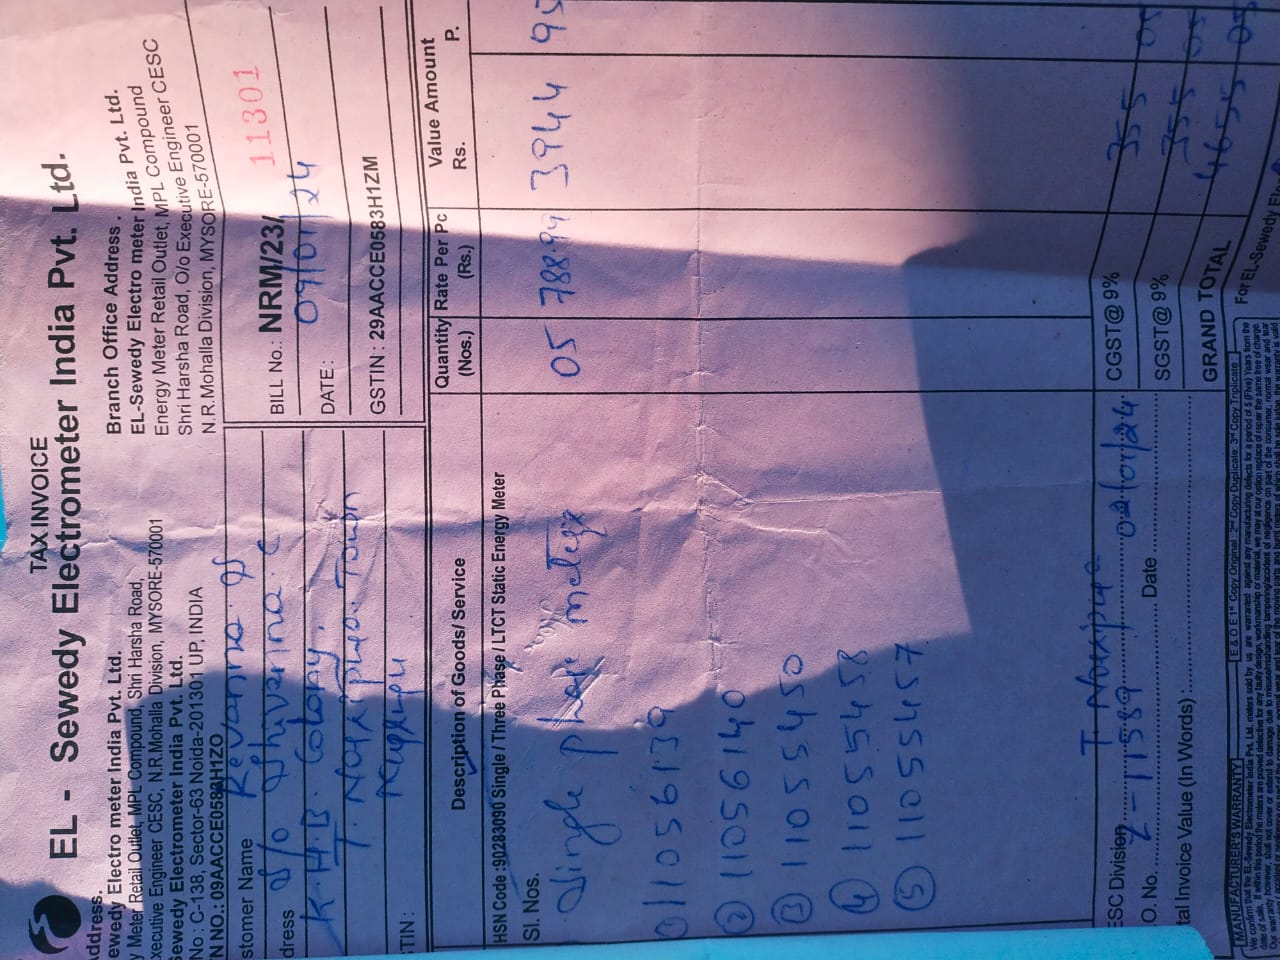 TAX INVOICE
EL - Sewedy Electrometer India Pvt. Ltd.
Address.
ewedy Electro meter India Pvt. Ltd.
y Meter Retail Outlet, MPL Compound, Shri Harsha Road,
xecutive Engineer CESC, N.R.Mohalla Division, MYSORE-570001
Sewedy Electrometer India Pvt. Ltd.
No : C-138, Sector-63 Noida-201301 UP, INDIA
N NO.: 09AACCE0583H1ZO
Branch Office Address .
EL-Sewedy Electro meter India Pvt. Ltd.
Energy Meter Retail Outlet, MPL Compound
Shri Harsha Road, O/o Executive Engineer CESC
N.R.Mohalla Division, MYSORE-570001
stomer Name Revanna
dress S/o Shivanna. C
K.H.B. Colony.
T. Narsipura Town
TIN :
BILL No.: NRM/23/ 11301
DATE: 09/01/24
GSTIN : 29AACCE0583H1ZM
Description of Goods/ Service
Quantity (Nos.)
Rate Per Pc (Rs.)
Value Amount
Rs. P.
HSN Code :90283090 Single / Three Phase / LTCT Static Energy Meter
Sl. Nos.
Single phase meters 05 788.94 3944 95
① 11056139
② 11056140
③ 11055450
④ 11055458
⑤ 11055457
ESC Division T. Narsipura
.O. No. 2-11589 Date 02/01/24
tal Invoice Value (In Words) :
CGST@ 9% 355 05
SGST@ 9% 355 05
GRAND TOTAL 4655 05
For EL-Sewedy El
MANUFACTURER'S WARRANTY
E & O E 1st Copy Original : 2nd Copy Duplicate: 3rd Copy Triplicate :
We confirm that the EL-Sewedy Electrometer India Pvt. Ltd. meters sold by us are warranted against any manufacturing defects for a period of 5 (Five) Years from the